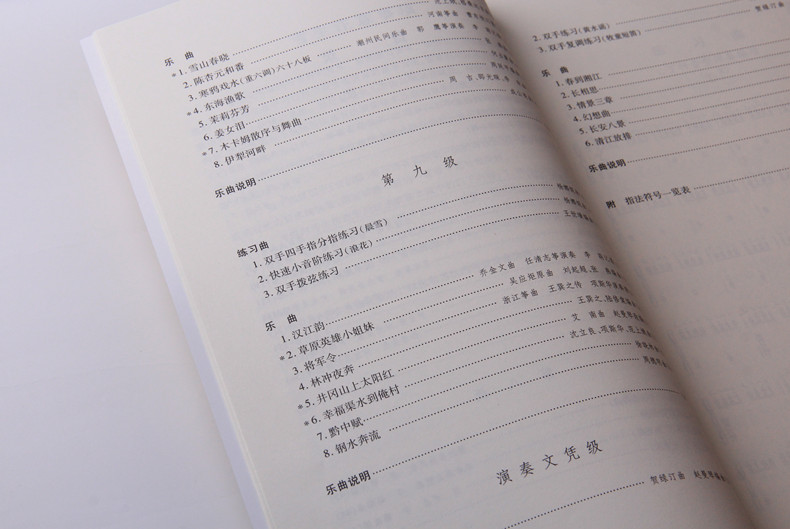 乐 曲
*1. 雪山春晓
2. 陈杏元和番 河南筝曲
3. 寒鸦戏水(重六调)六十八板 潮州民间乐曲
*4. 东海渔歌
5. 茉莉芬芳
6. 姜女泪
*7. 木卡姆散序与舞曲
8. 伊犁河畔
乐曲说明
第 九 级
练习曲
1. 双手四手指分指练习(晨雪)
2. 快速小音阶练习(浪花)
3. 双手拨弦练习
乐 曲
1. 汉江韵 乔金文曲 任清志演奏
*2. 草原英雄小姐妹 吴应炬原曲
3. 将军令 浙江筝曲 王巽之传
4. 林冲夜奔
*5. 井冈山上太阳红
*6. 幸福渠水到俺村 沈立良、项斯华
7. 黔中赋
8. 钢水奔流
乐曲说明
演奏文凭级
贺绿汀曲
2. 双手练习
3. 双手复调练习(牧童短笛) 贺绿汀曲
乐 曲
1. 春到湘江
2. 长相思
3. 情景三章
4. 幻想曲
5. 长安八景
6. 清江放排
乐曲说明
附 指法符号一览表